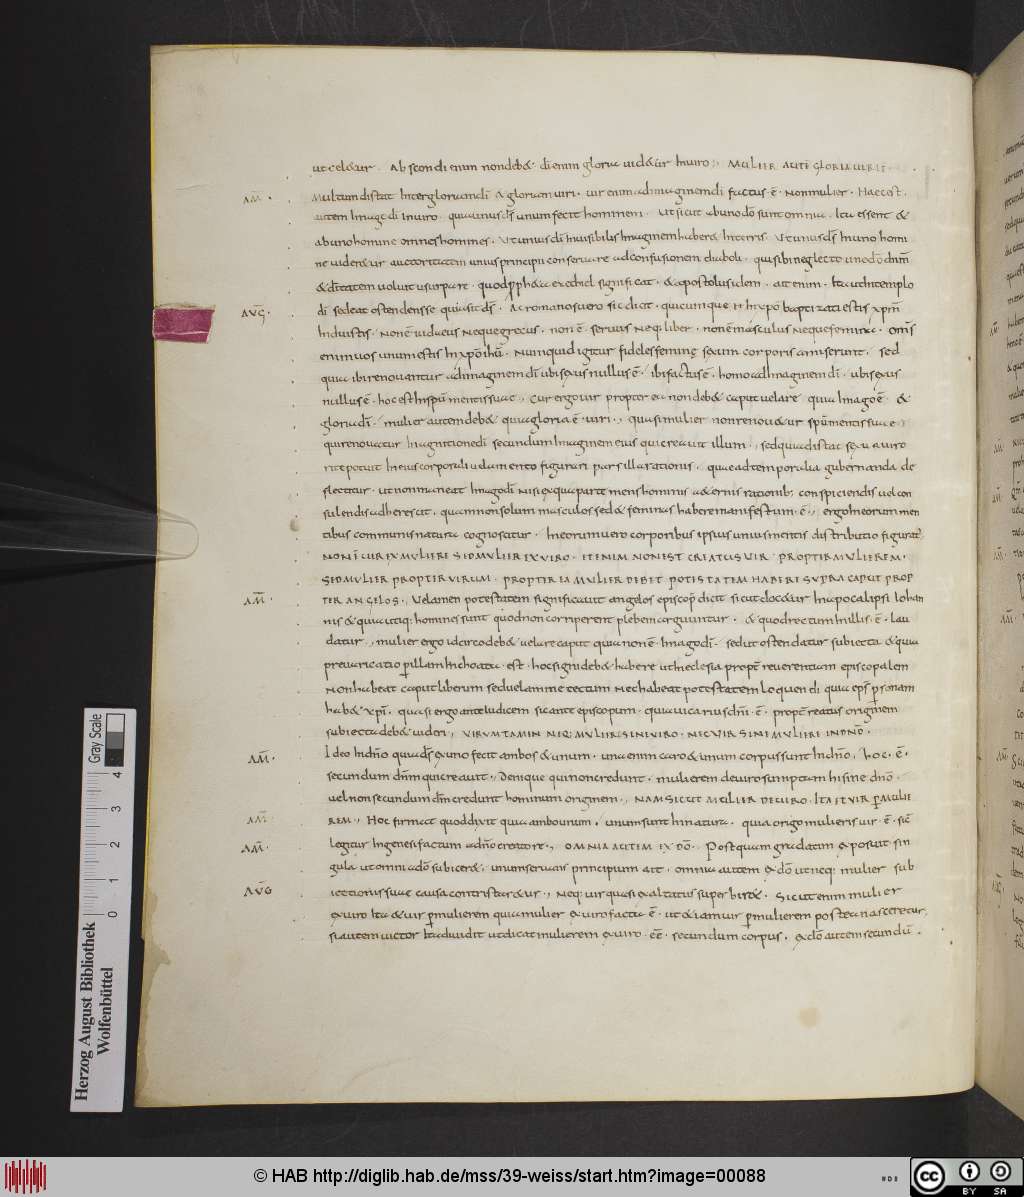 ut celetur. Abscondi enim non debet di enim gloria uidetur in uiro; MULIER AUTĒ GLORIA VIRI Ē.
AM̄. Multum distat inter gloriam di & gloriam uiri. uir enim ad imaginem di factus ē. Non mulier. Haec est
autem imago di in uiro. quia unus d̄s unum fecit hominem. ut sicut ab uno dō sunt omnia. Ita essent &
ab uno homine omnes homines. Ut unius dī inuisibilis imaginem haberet in terris. Ut unus d̄s in uno homi
ne uideretur auctoritatem unius principii conseruare ad confusionem diaboli. qui sibi neglecto uno dō dn̄ium
& diītatem uoluit usurpare. quod ꝓph&a ezechiel significat. & apostolus idem. ait enim. Ita ut in templo
AUḠ. dī sedeat ostendens se quasi sit d̄s. Ac romanos uero sic dicit. quicumque in xp̄o baptizati estis xp̄m
induistis. Non ē iudaeus neque grecus. non ē seruus neq; liber. non ē masculus neque femina. om̄s
enim uos unum estis in xp̄o ih̄u. Numquid igitur fideles feminę sexum corporis amiserunt. sed
quia ibi renouantur ad imaginem dī ubi sexus nullus ē. ibi factus ē. homo ad imaginem dī. ubi sexus
nullus ē. hoc est in sp̄u mentis suae; Cur ergo uir propter ea non deb& caput uelare. quia imago ē. &
gloria dī. mulier autem deb& quia gloria ē uiri; quasi mulier non renouetur sp̄u mentis suae;
qui renouatur in agnitione dī secundum imaginem eius qui creauit illum; sed quia distat sexu a uiro
rite potuit in eius corporali uelamento figurari pars illa rationis. quae ad temporalia gubernanda de
flectitur. ut non maneat imago dī nisi ex qua parte mens hominis aeternis rationib; conspiciendis uel con
sulendis adherescit. quam non solum masculos sed & feminas habere manifestum ē; ergo in eorum men
tibus communis natura cognoscitur. In eorum uero corporibus ipsius unius mentis distributio figurat̄.
NON Ē VIR EX MULIERE SED MULIER EX VIRO. ETENIM NON EST CREATUS VIR PROPTER MULIEREM.
SED MULIER PROPTER VIRUM. PROPTER EA MULIER DEBET POTESTATEM HABERE SUPRA CAPUT PROP
AM̄. TER ANGELOS; Uelamen potestatem significauit angelos episcop̄ dicit sicut docetur in apocalipsi Iohan
nis & quia utiq: homines sunt quod non corriperent plebem arguuntur. & quod rectum in illis ē. lau
datur; mulier ergo idcirco deb& uelare caput quia non ē imago dī. sed ut ostendatur subiecta & quia
preuaricatio ꝑ illam inchoata est. hoc signi deb& habere ut in eclesia propt̄ reuerentiam episcopalem
non habeat caput liberum sed uelamine tectum nec habeat potestatem loquendi quia ep̄s ꝑsonam
hab& xp̄i. quasi ergo ante iudicem sic ante episcopum. quia uicarius dn̄i ē. propt̄ reatus originem
subiecta deb& uideri; VIRUM TAMEN NEQ; MULIER SINE VIRO. NEC VIR SINE MULIERE IN DNŌ.
AM̄. Ideo in dn̄o quia d̄s ex uno fecit ambos & unum. una enim caro & unum corpus sunt in dn̄o, hoc. ē.
secundum dn̄m qui creauit; Denique qui non credunt. mulierem de uiro sumptam hi sine dn̄o.
uel non secundum dn̄m credunt hominum originem; NAM SICUT MULIER DE VIRO. ITA ET VIR P̱ MULIE
AM̄. REM; Hoc firmat quod dixit quia ambo unum. unum sunt in natura. quia origo mulieris uir. ē. sic̄
AM̄. legitur in genesi factum a dn̄o creatore; OMNIA AUTEM EX DŌ. Postquam gradatim exposuit sin
gula ut omnia dō subiceret; unum seruans principium ait. omnia autem ex dō ut neq: mulier sub
AUḠ iectionis suae causa contristaretur; neq: uir quasi exaltatus superbiret. Sicut enim mulier
ex uiro ita & uir ꝑ mulierem quia mulier ex uiro facta ē. ut etiam uir ꝑ mulierem postea nasceretur;
si autem uictor ita diuidit ut dicat mulierem ex uiro. eē. secundum corpus. ex dō autem secundū.
Herzog August Bibliothek
Wolfenbüttel
0 1 2 3 4
Gray Scale
© HAB http://diglib.hab.de/mss/39-weiss/start.htm?image=00088
cc BY SA